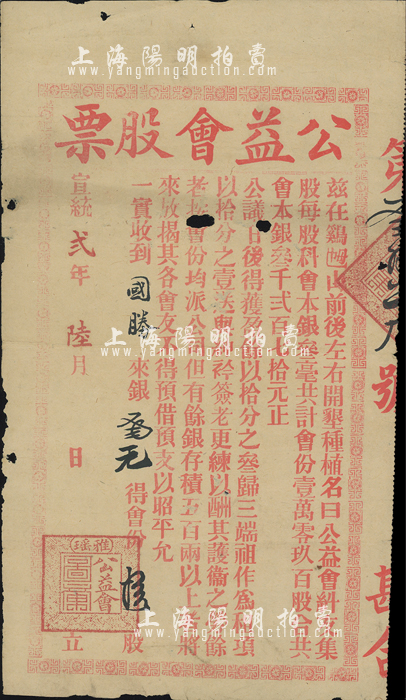 上海陽明拍賣
www.yangmingauction.com
公益會股票
茲在鷄山前後左右開墾種植名曰公益會集
股每股科會本銀叁毫共計會份壹萬零玖百股合共
會本銀叁千弍百拾元正
公議日後得獲以拾分之叁歸三端祖作為項
以拾分之壹送簽老更練以酬其護衞之餘
老會份均派公但有餘銀存積五百兩以上將
來放揭其各會友得預借頂支以昭平允
一實收到 國勝 來銀 叁元 得會份 股
宣統弍年 陸月 日 立
第 號
公益會
上海陽明拍賣
www.yangmingauction.com
上海陽明拍賣
www.yangmingauction.com